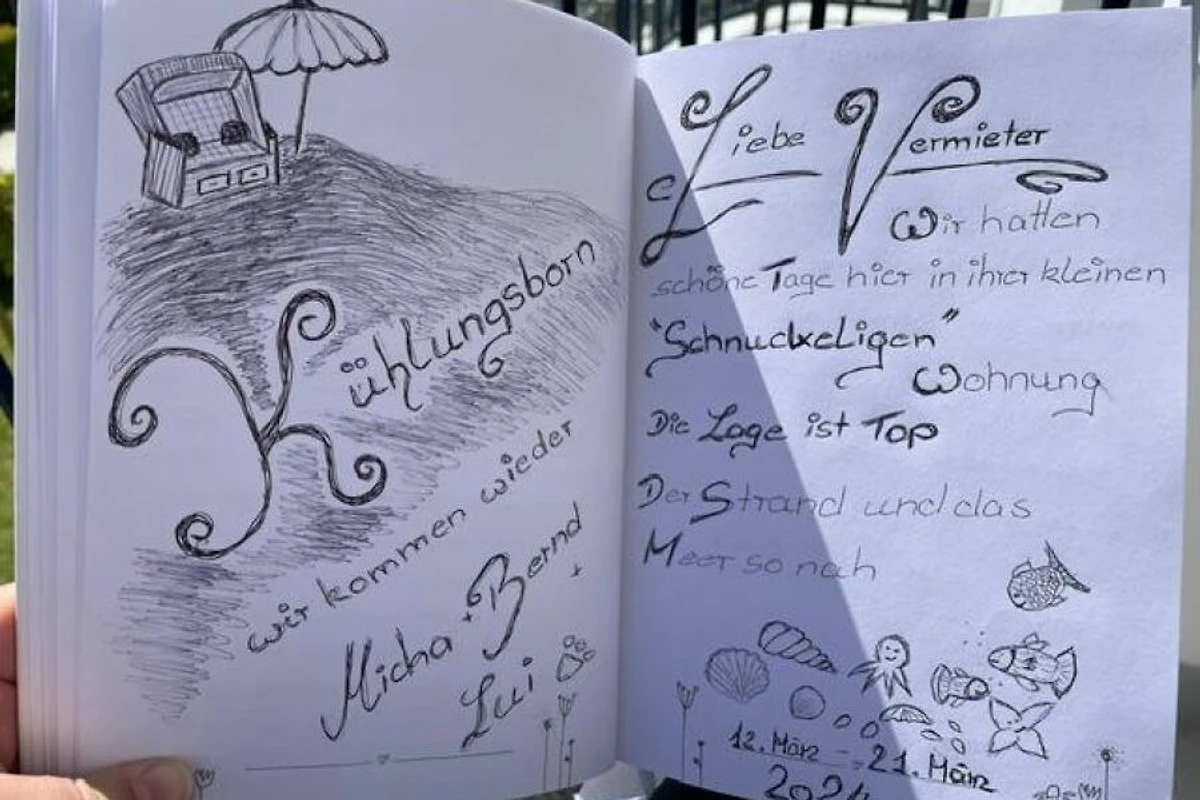 Kühlungsborn
wir kommen wieder
Micha + Bernd +
Lui
Liebe Vermieter
Wir hatten
schöne Tage hier in ihrer kleinen
"Schnuckeligen"
Wohnung
Die Lage ist Top
Der Strand und das
Meer so nah
12. März - 21. März
2024